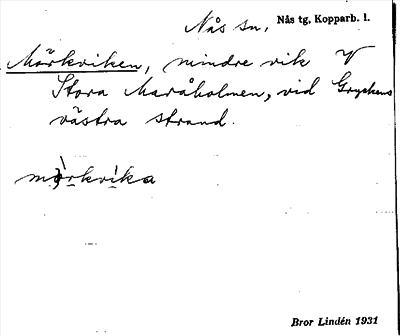 Nås sn. Nås tg, Kopparb. l.
Mörkviken, mindre vik V
Stora Maråholmen, vid Gryckens
västra strand.
mörkvika
Bror Lindén 1931